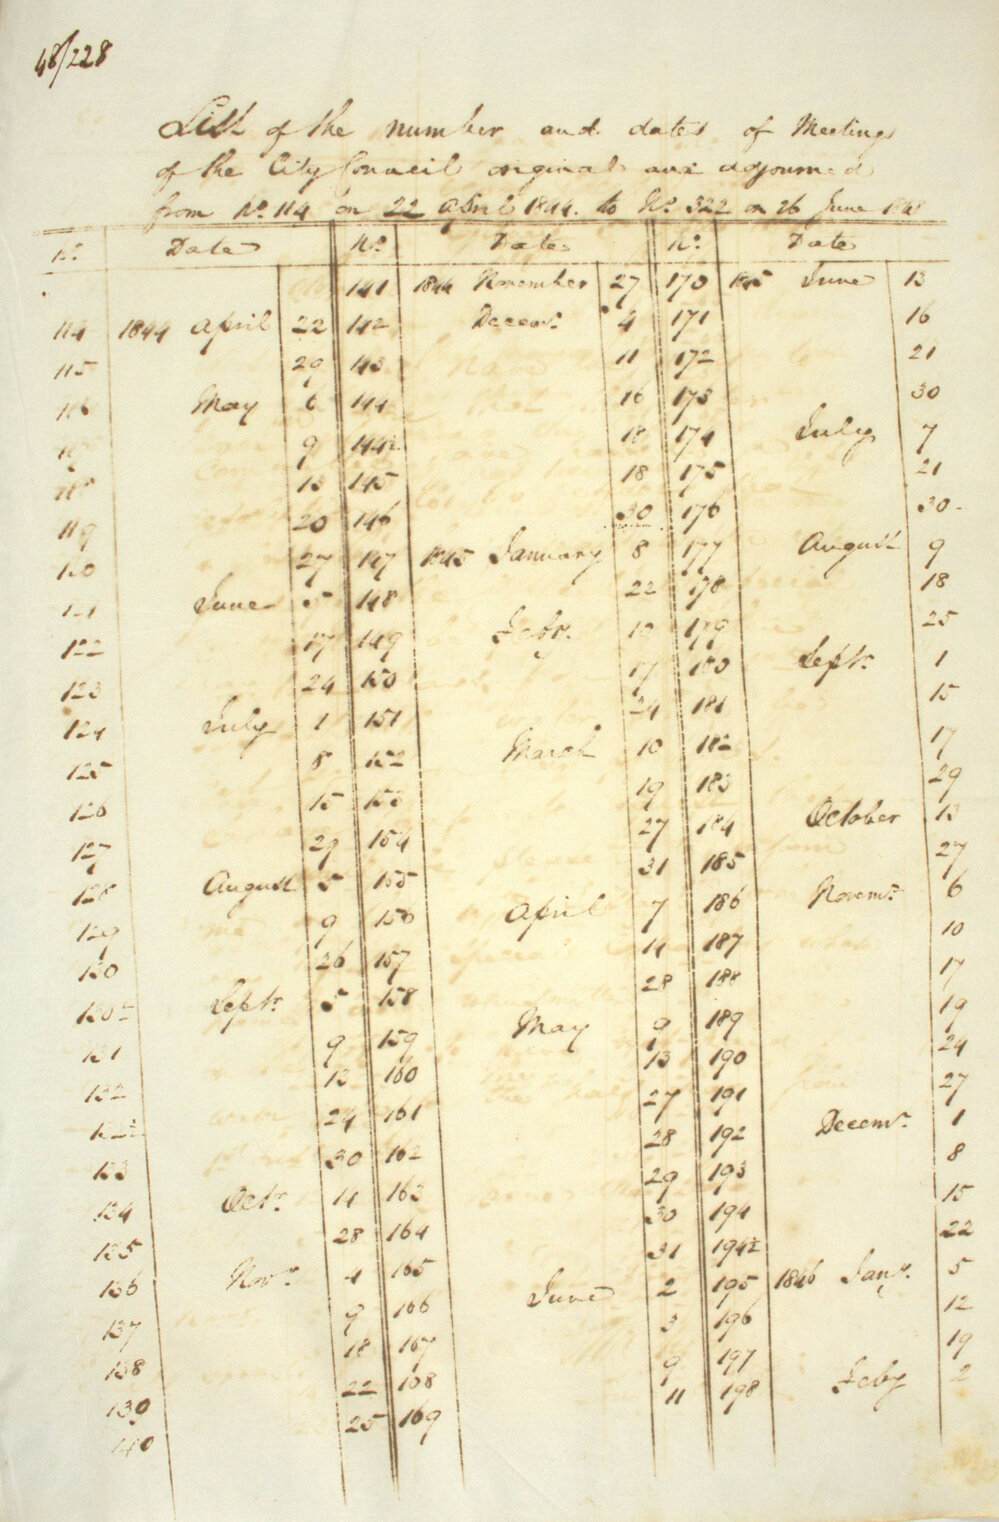 48/228
List of the number and dates of Meetings
of the City Council original and adjourned
from No. 114 on 22 April 1844. to No. 322 on 26 June 184
No. Date No. Date No. Date
141 1844 November 27 170 1845 June 13
114 1844 April 22 142 Decemr. 4 171 16
115 29 143 11 172 21
116 May 6 144 16 173 30
117 9 144½ 18 174 July 7
118 13 145 18 175 21
119 20 146 30 176 30
120 27 147 1845 January 8 177 August 9
121 June 5 148 22 178 18
122 17 149 Feby. 10 179 25
123 24 150 17 180 Septr. 1
124 July 1 151 24 181 15
125 8 152 March 10 182 17
126 15 153 19 183 29
127 29 154 27 184 October 13
128 August 5 155 31 185 27
129 9 156 April 7 186 Novemr. 6
130 26 157 14 187 10
130½ Septr. 5 158 28 188 17
131 9 159 May 9 189 19
132 13 160 13 190 24
132½ 24 161 27 191 27
133 30 162 28 192 Decemr. 1
134 Octr. 14 163 29 193 8
135 28 164 30 194 15
136 Novr. 4 165 31 194½ 22
137 9 166 June 2 195 1846 Jany. 5
138 18 167 3 196 12
139 22 168 9 197 19
140 25 169 11 198 Feby 2